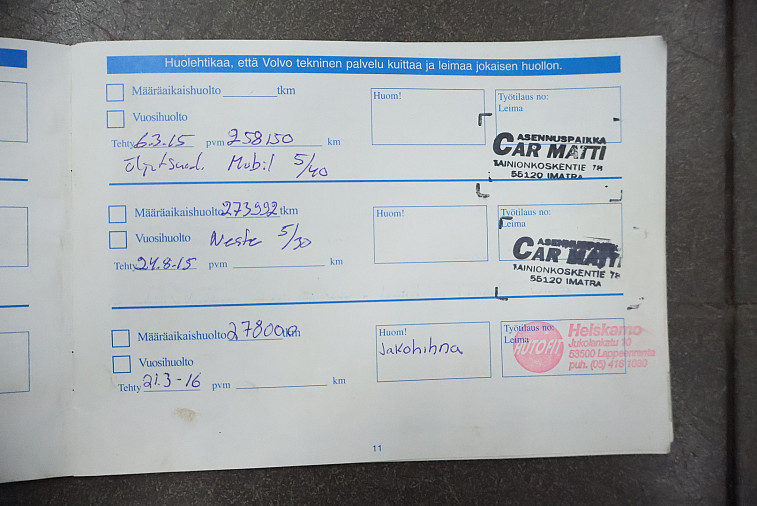 Huolehtikaa, että Volvo tekninen palvelu kuittaa ja leimaa jokaisen huollon.
Määräaikaishuolto tkm
Huom!
Työtilaus no:
Leima
Vuosihuolto
Tehty 6.3.15 pvm 258150 km
Mobil 5/40
ASENNUSPAIKKA
CAR MATTI
TAINIONKOSKENTIE 78
55120 IMATRA
Määräaikaishuolto 273992 tkm
Huom!
Työtilaus no:
Leima
Vuosihuolto Neste 5/30
Tehty 24.8-15 pvm km
ASENNUSPAIKKA
CAR MATTI
TAINIONKOSKENTIE 78
55120 IMATRA
Määräaikaishuolto 278000 tkm
Huom!
Jakohihna
Työtilaus no:
Leima
Vuosihuolto
Tehty 21.3-16 pvm km
AUTOFIT
Helskamo
Jukolankatu 10
53500 Lappeenranta
puh. (05) 416 1080
11